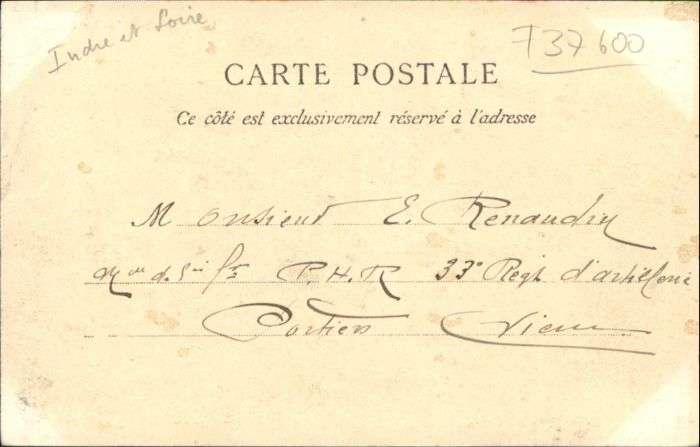 Indre et Loire
T37600
CARTE POSTALE
Ce côté est exclusivement réservé à l'adresse
Monsieur E. Renaudin
P.H.R 33e Régt d'artillerie
Poitiers Vienne